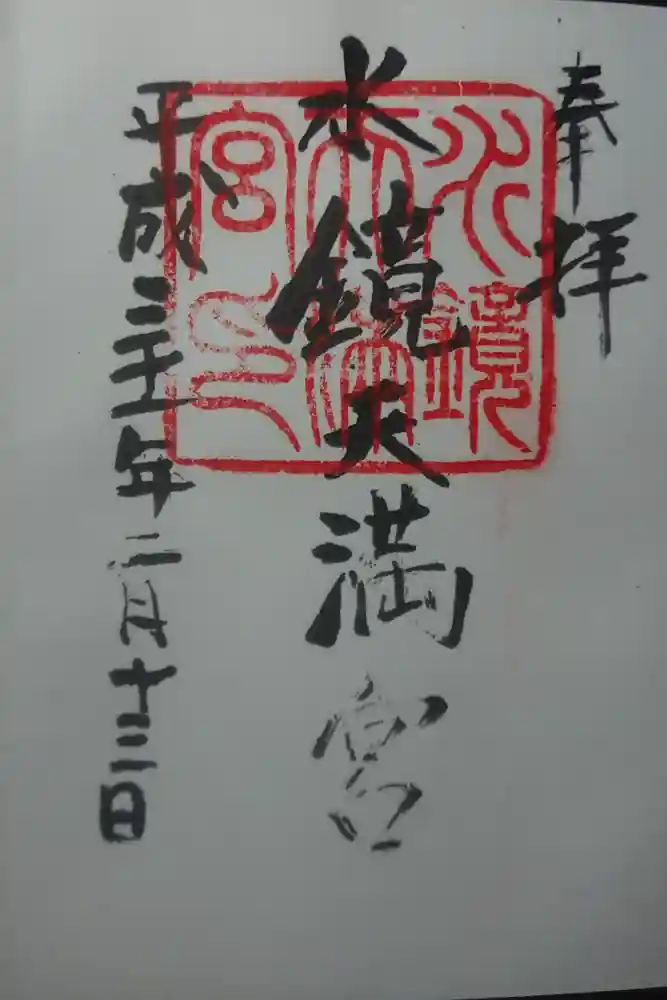 奉拝
水鏡天満宮
水鏡
天満
宮印
平成三十一年二月十三日